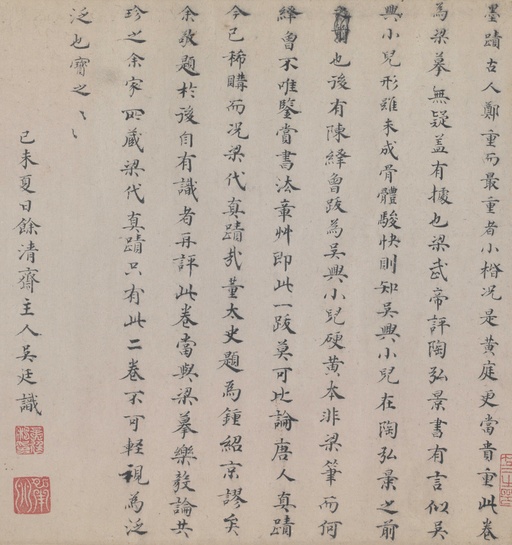 墨蹟古人鄭重而最重者小楷况是黃庭更當貴重此卷
為梁摹無疑盖有據也梁武帝評陶弘景書有言似吳
興小兒形雖未成骨體駿快則知吳興小兒在陶弘景之前
也後有陳繹曾跋為吳興小兒硬黃本非梁筆而何
繹曾不唯鑒賞書法章艸即此一跋莫可比論唐人真蹟
今已稀購而况梁代真蹟哉董太史題為鍾紹京謬矣
余敢題於後自有識者再評此卷當與梁摹樂毅論共
珍之余家所藏梁代真蹟只有此二卷不可輕視為泛
泛也寶之〻
己未夏日餘清齋主人吳廷識